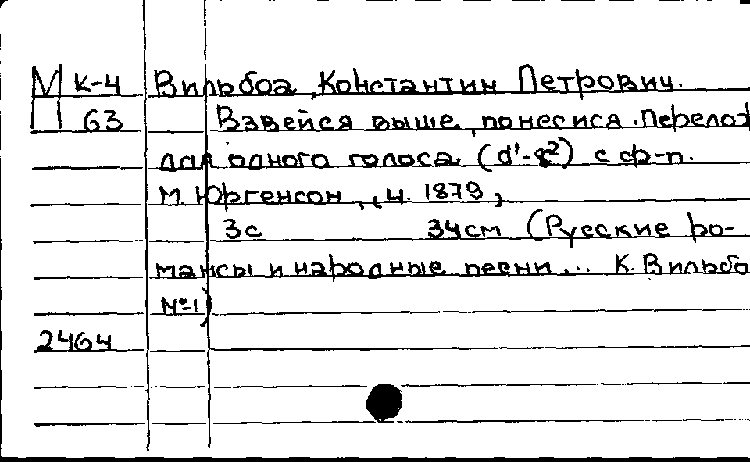 М К-4 Вильбоа, Константин Петрович.
П 63 Взвейся выше, понесися. Перелож
для одного голоса (d¹-g²) с ф-п.
М. Юргенсон, ц. 1879,
3с 34см (Русские ро-
мансы и народные песни... К. Вильбо
№1)
2464